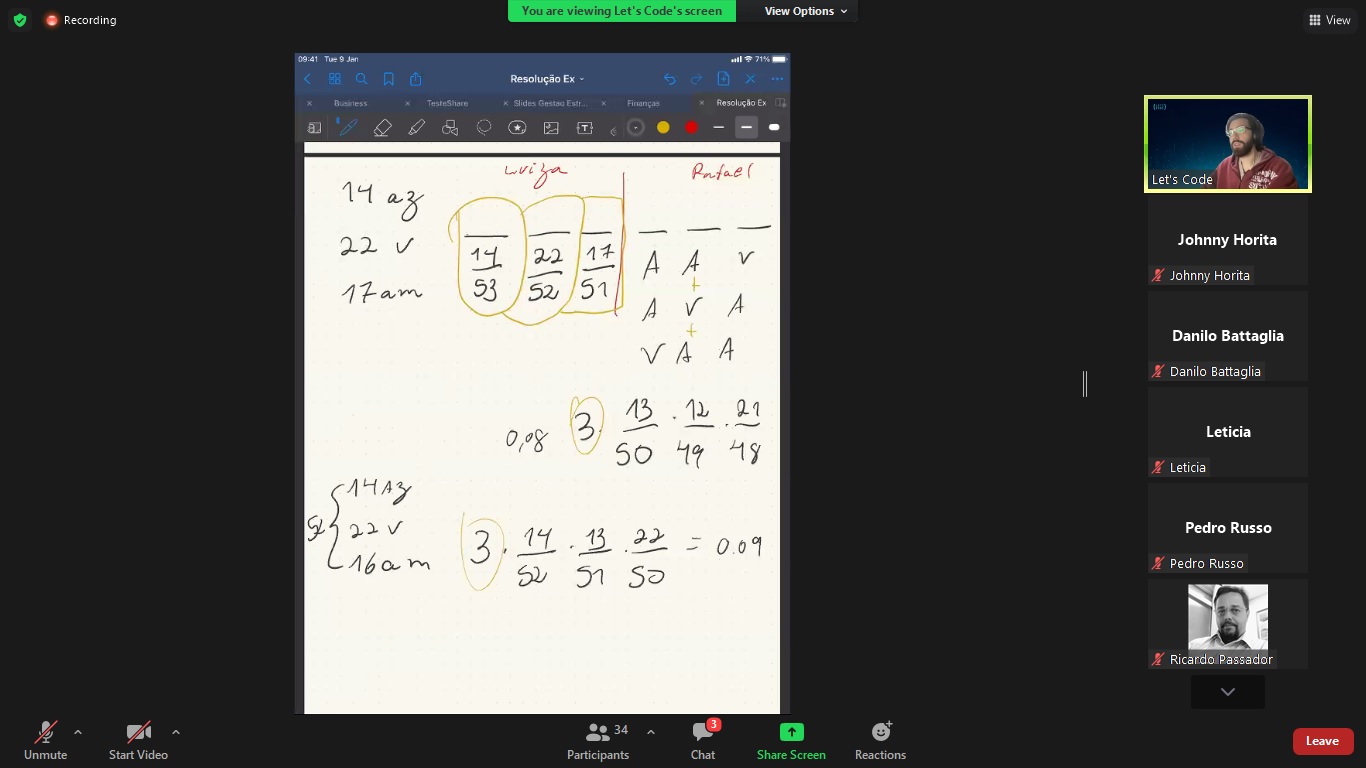 Recording
You are viewing Let's Code's screen
View Options
View
09:41 Tue 9 Jan
71%
Resolução Ex
Business
TesteShare
Slides Gestao Estr...
Finanças
Resolução Ex
Luiza
Rafael
14 az
22 v
17 am
14/53 22/52 17/51
A A v
+
A V A
+
V A A
0,08 3 . 13/50 . 12/49 . 21/48
14 Az
22 v
16 am
3 . 14/52 . 13/51 . 22/50 = 0.09
Let's Code
Johnny Horita
Johnny Horita
Danilo Battaglia
Danilo Battaglia
Leticia
Leticia
Pedro Russo
Pedro Russo
Ricardo Passador
Unmute
Start Video
34
Participants
3
Chat
Share Screen
Reactions
Leave